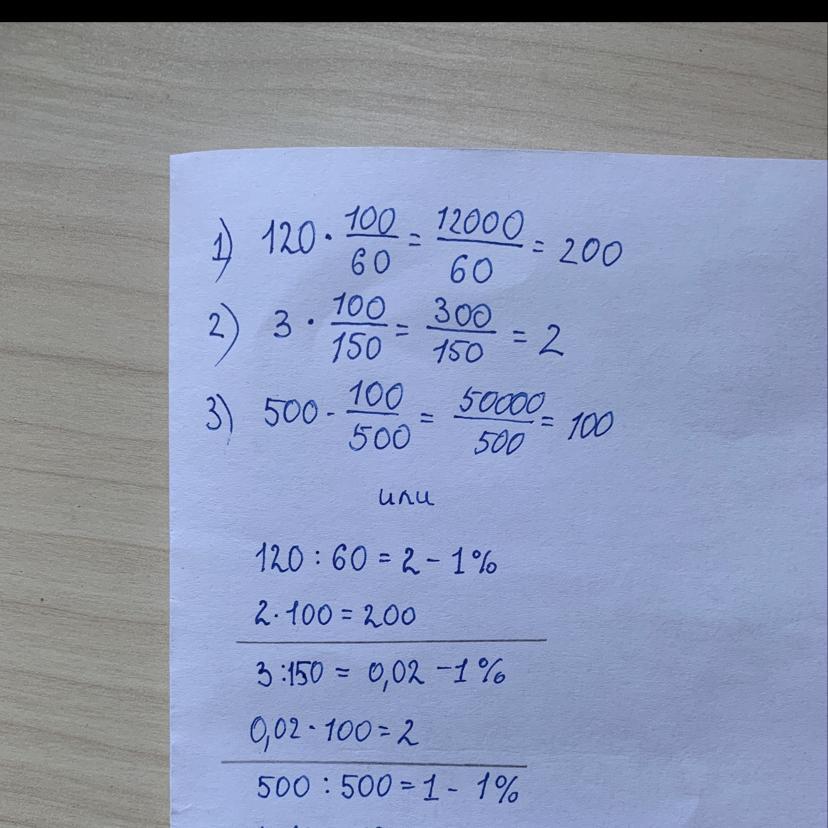 1) 120 · 100/60 = 12000/60 = 200
2) 3 · 100/150 = 300/150 = 2
3) 500 - 100/500 = 50000/500 = 100
или
120 : 60 = 2 - 1%
2 · 100 = 200
3 : 150 = 0,02 - 1%
0,02 · 100 = 2
500 : 500 = 1 - 1%